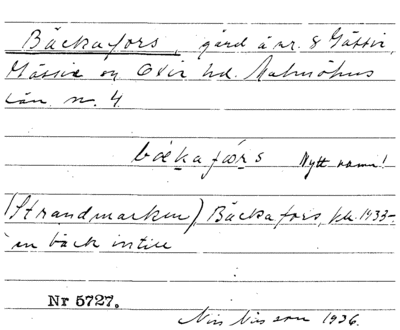 Bäckafors, gård å nr. 8 Gässie,
Gässie sn Oxie hd. Malmöhus
län. nr. 4
bækafårs Nytt namn!
(Strandmarken) Bäckafors, 1933-
en bäck intill
Nr 5727.
Nils Nilsson 1936.